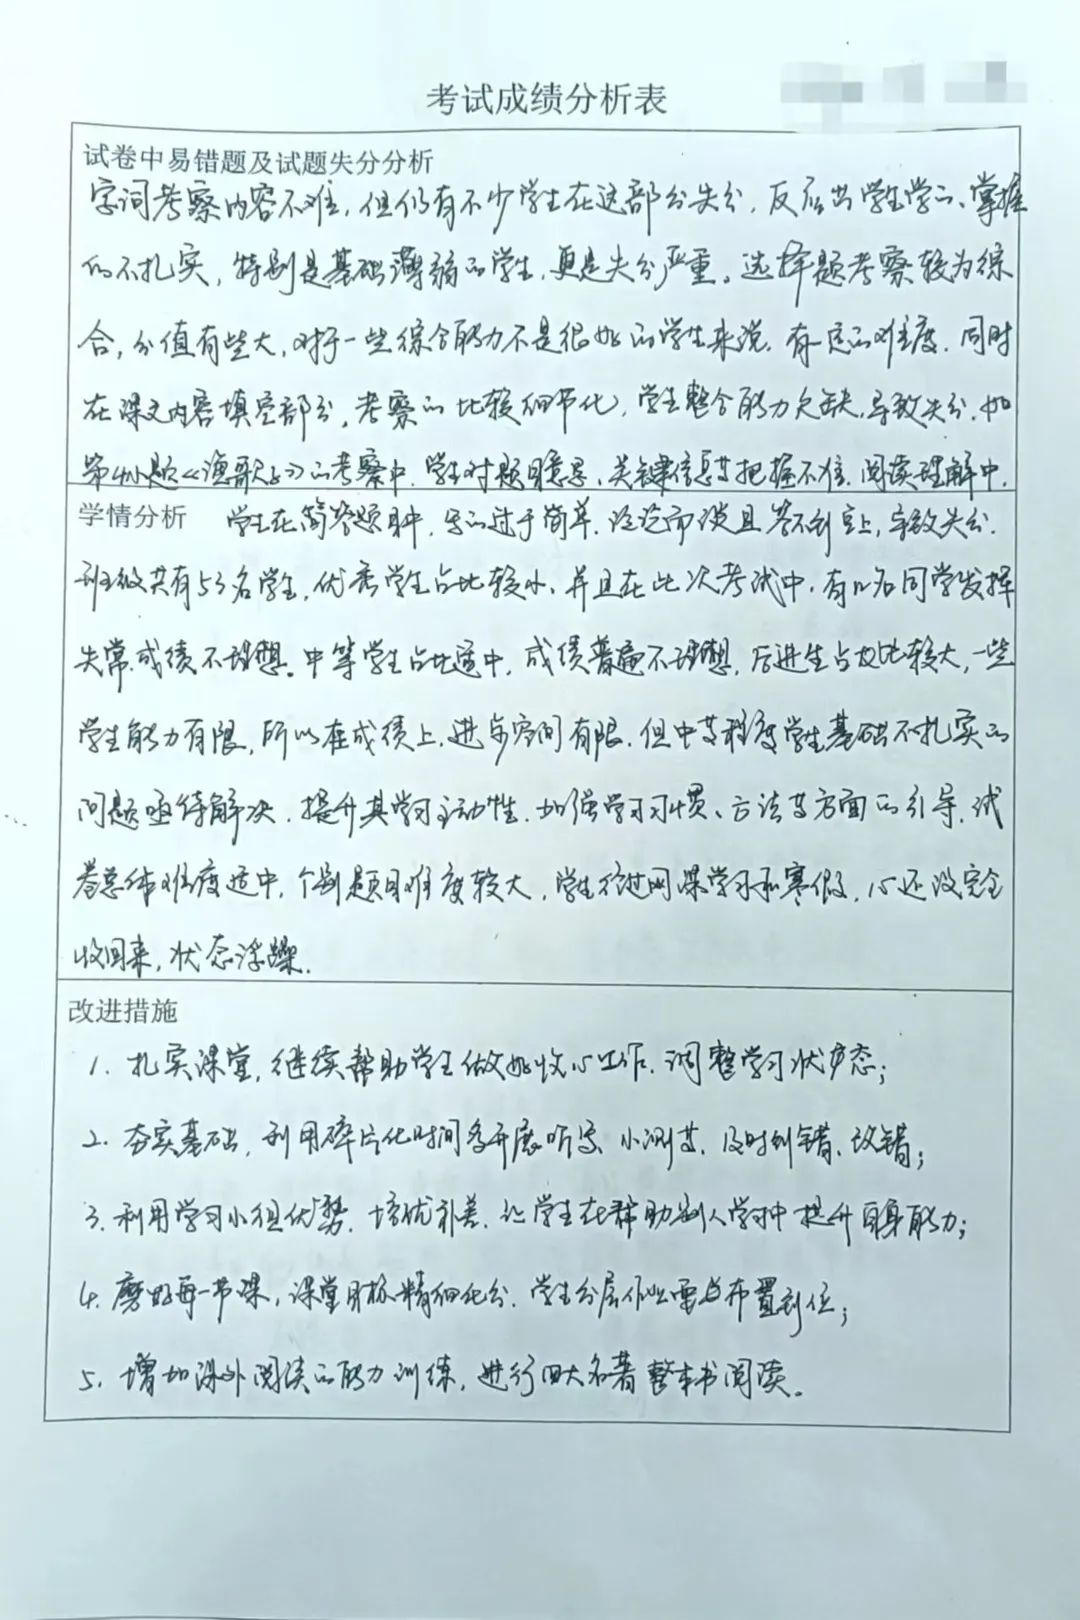 考试成绩分析表
试卷中易错题及试题失分分析
字词考察内容不难，但仍有不少学生在这部分失分，反应出学生学习、掌握
的不扎实，特别是基础薄弱的学生，更是失分严重。选择题考察较为综
合，分值有些大，对于一些综合能力不是很好的学生来说，有一定的难度，同时
在课文内容填空部分，考察的比较细节化，学生整合能力欠缺，导致失分，如
第4小题《渔歌子》的考察中，学生对题目意思、关键信息把握不准，阅读理解中，
学情分析 学生在简答题目中，写的过于简单，泛泛而谈且答不到点上，导致失分。
班级共有53名学生，优秀学生占比较小，并且在此次考试中，有几名同学发挥
失常，成绩不理想。中等学生占比适中，成绩普遍不理想，后进生占比比较大，一些
学生能力有限，所以在成绩上，进步空间有限，但中等程度学生基础不扎实的
问题亟待解决，提升其学习主动性，加强学习习惯、方法等方面的引导，试
卷总体难度适中，个别题目难度较大，学生经过网课学习和寒假，心还没完全
收回来，状态浮躁。
改进措施
1. 扎实课堂，继续帮助学生做好收心工作，调整学习状态；
2. 夯实基础，利用碎片化时间多开展听写、小测等，及时纠错、改错；
3. 利用学习小组优势，培优补差，让学生在帮助别人学习中提升自身能力；
4. 磨好每一节课，课堂目标精细化分，学生分层作业要点布置到位；
5. 增加课外阅读的能力训练，进行四大名著整本书阅读。